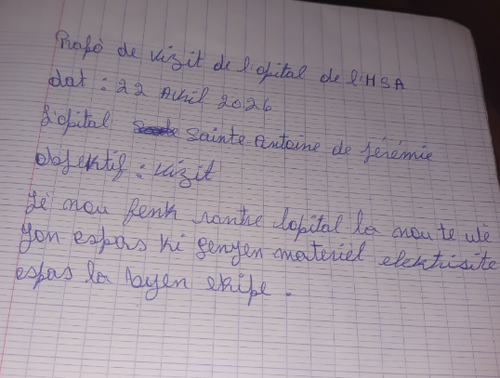 Rapò de vizit de l'opital de l'HSA
dat : 22 Avril 2026
L'opital Sainte-Antoine de Jérémie
objektif : vizit
Lè nou fenk rantre lopital la nou te wè
yon espas ki genyen materiel elektrisite
espas la byen ekipe .